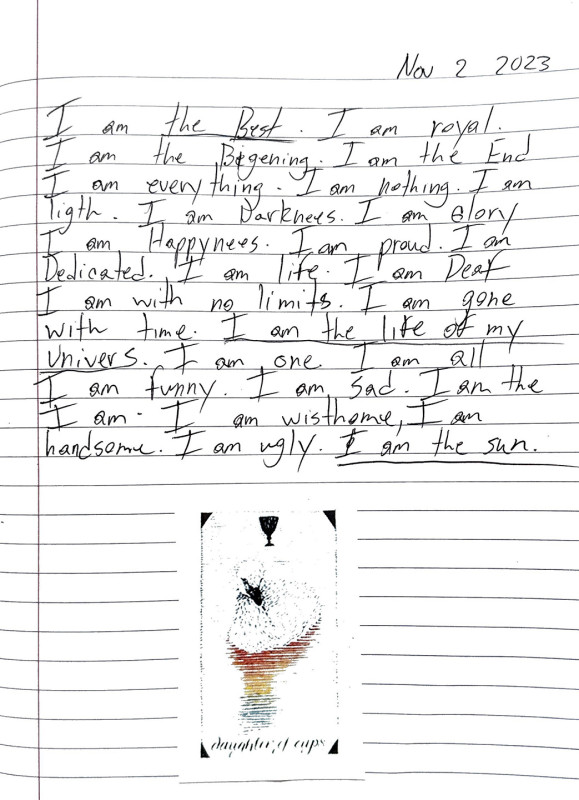 Nov 2 2023
I am the Best. I am royal.
I am the Begening. I am the End
I am everything. I am nothing. I am
ligth. I am Darknees. I am Glory
I am Happynees. I am proud. I am
Dedicated. I am life. I am Deaf
I am with no limits. I am gone
with time. I am the life of my
Univers. I am one. I am all
I am funny. I am sad. I am the
I am. I am wisthome, I am
handsome. I am ugly. I am the sun.